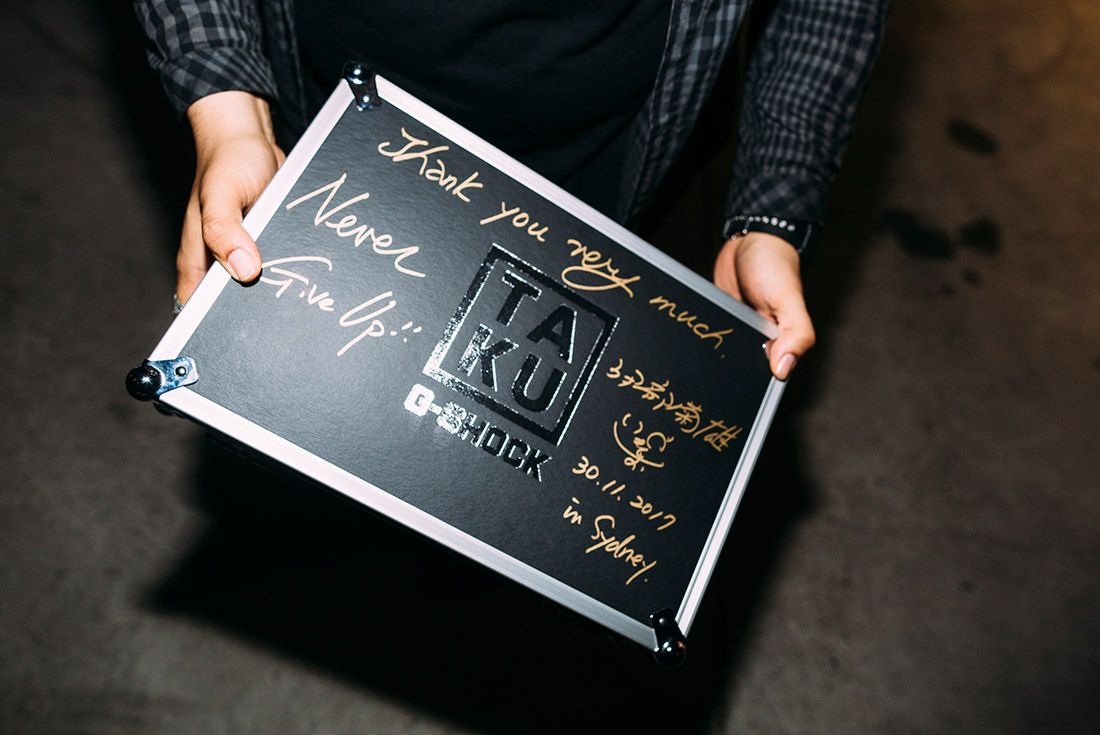 Thank you very much.
Never
Give Up!!
TA
KU
G-SHOCK
菊雄
30.11.2017
in Sydney.